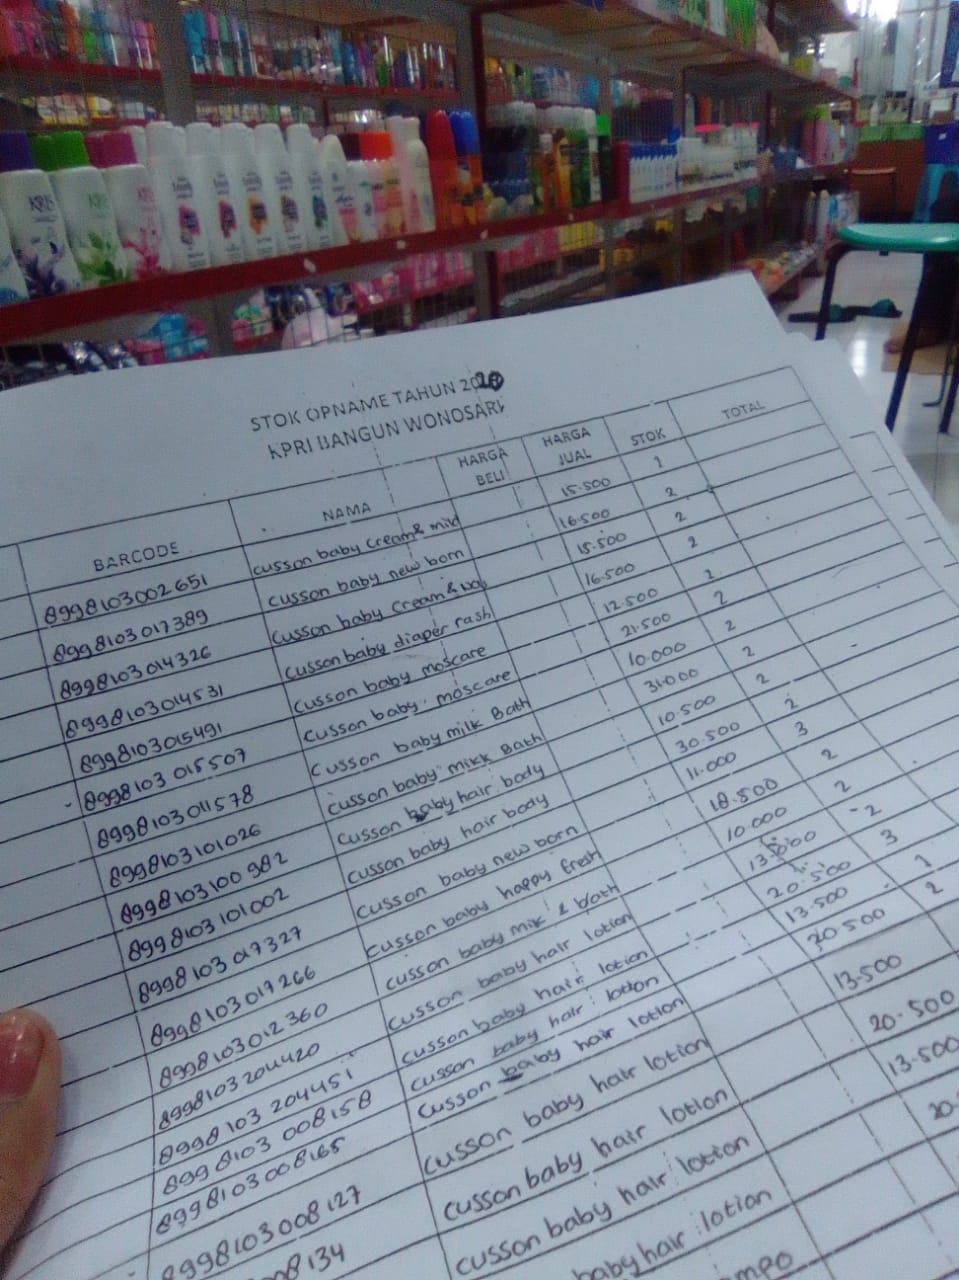 KRIS
KRIS
KRIS
STOK OPNAME TAHUN 2020
KPRI BANGUN WONOSARI
BARCODE NAMA HARGA BELI HARGA JUAL STOK TOTAL
8998103002651 cusson baby cream & mild 15.500 1
8998103017389 cusson baby new born 16.500 2
8998103014326 cusson baby cream & 15.500 2
8998103014531 cusson baby diaper rash 16.500 2
8998103015491 cusson baby moscare 12.500 2
8998103015507 cusson baby moscare 21.500 2
8998103011578 cusson baby milk Bath 10.000 2
8998103101026 cusson baby milk Bath 31.000 2
8998103100982 cusson baby hair body 10.500 2
8998103101002 cusson baby hair body 30.500 2
8998103017327 cusson baby new born 11.000 3
8998103017266 cusson baby happy fresh 18.500 2
8998103012360 cusson baby milk & bath 10.000 2
8998103204420 cusson baby hair lotion 2
8998103204451 cusson baby hair lotion 20.500 3
8998103008158 cusson baby hair lotion 13.500 1
8998103008165 cusson baby hair lotion 20.500 2
8998103008127 cusson baby hair lotion 13.500
008134 cusson baby hair lotion 20.500
cusson baby hair lotion 13.500
baby hair lotion